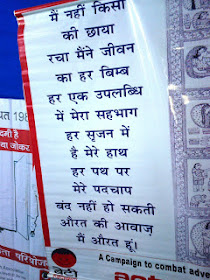 मैं नहीं किसी
की छाया
रचा मैंने जीवन
का हर बिम्ब
हर एक उपलब्धि
में मेरा सहभाग
हर सृजन में
है मेरे हाथ
हर पथ पर
मेरे पदचाप
बंद नहीं हो सकती
औरत की आवाज
मैं औरत हूं!
A Campaign to combat adve